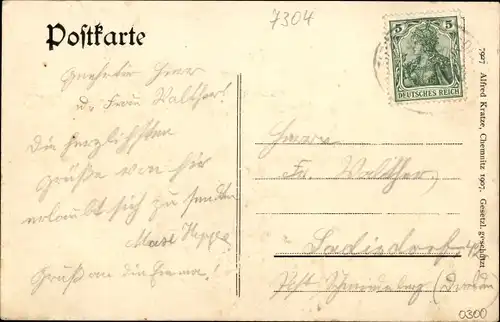 7304
Postkarte
5 5
DEUTSCHES REICH
Geehrter Herr
u. Frau Walther!
Die herzlichsten
Grüße von hier
erlaubt sich zu senden
Max
Gruß an die Emma!
Herrn
Fr. Walther,
Sadisdorf
Post Schmiedeberg (Dresden
7927 Alfred Kratze, Chemnitz 1907. Gesetzl. geschützt
0300